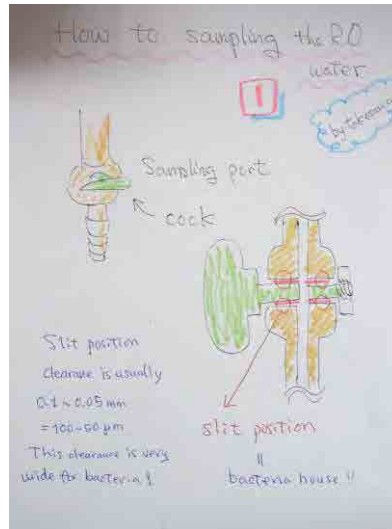 How to sampling the RO
water
1
by takesawa
Sampling port
cock
Slit position
clearance is usually
0.1~0.05mm
=100~50μm
This clearance is very
wide for bacteria!
slit position
"
bacteria house "